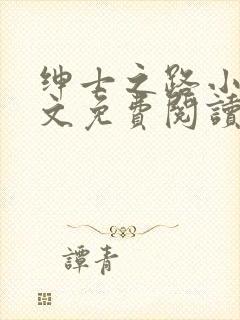 绅士之路小
文免費閱讀
譚青